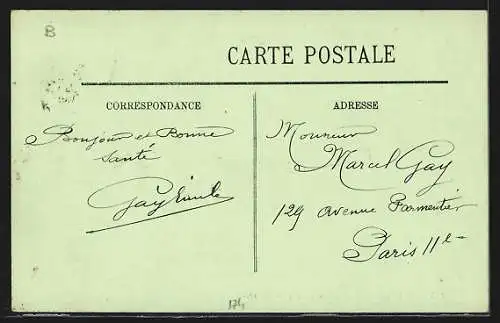 B
CARTE POSTALE
CORRESPONDANCE
Bonjour et Bonne
Santé
Gay Emile
ADRESSE
Monsieur
Marcel Gay
129 Avenue Parmentier
Paris 11e
174